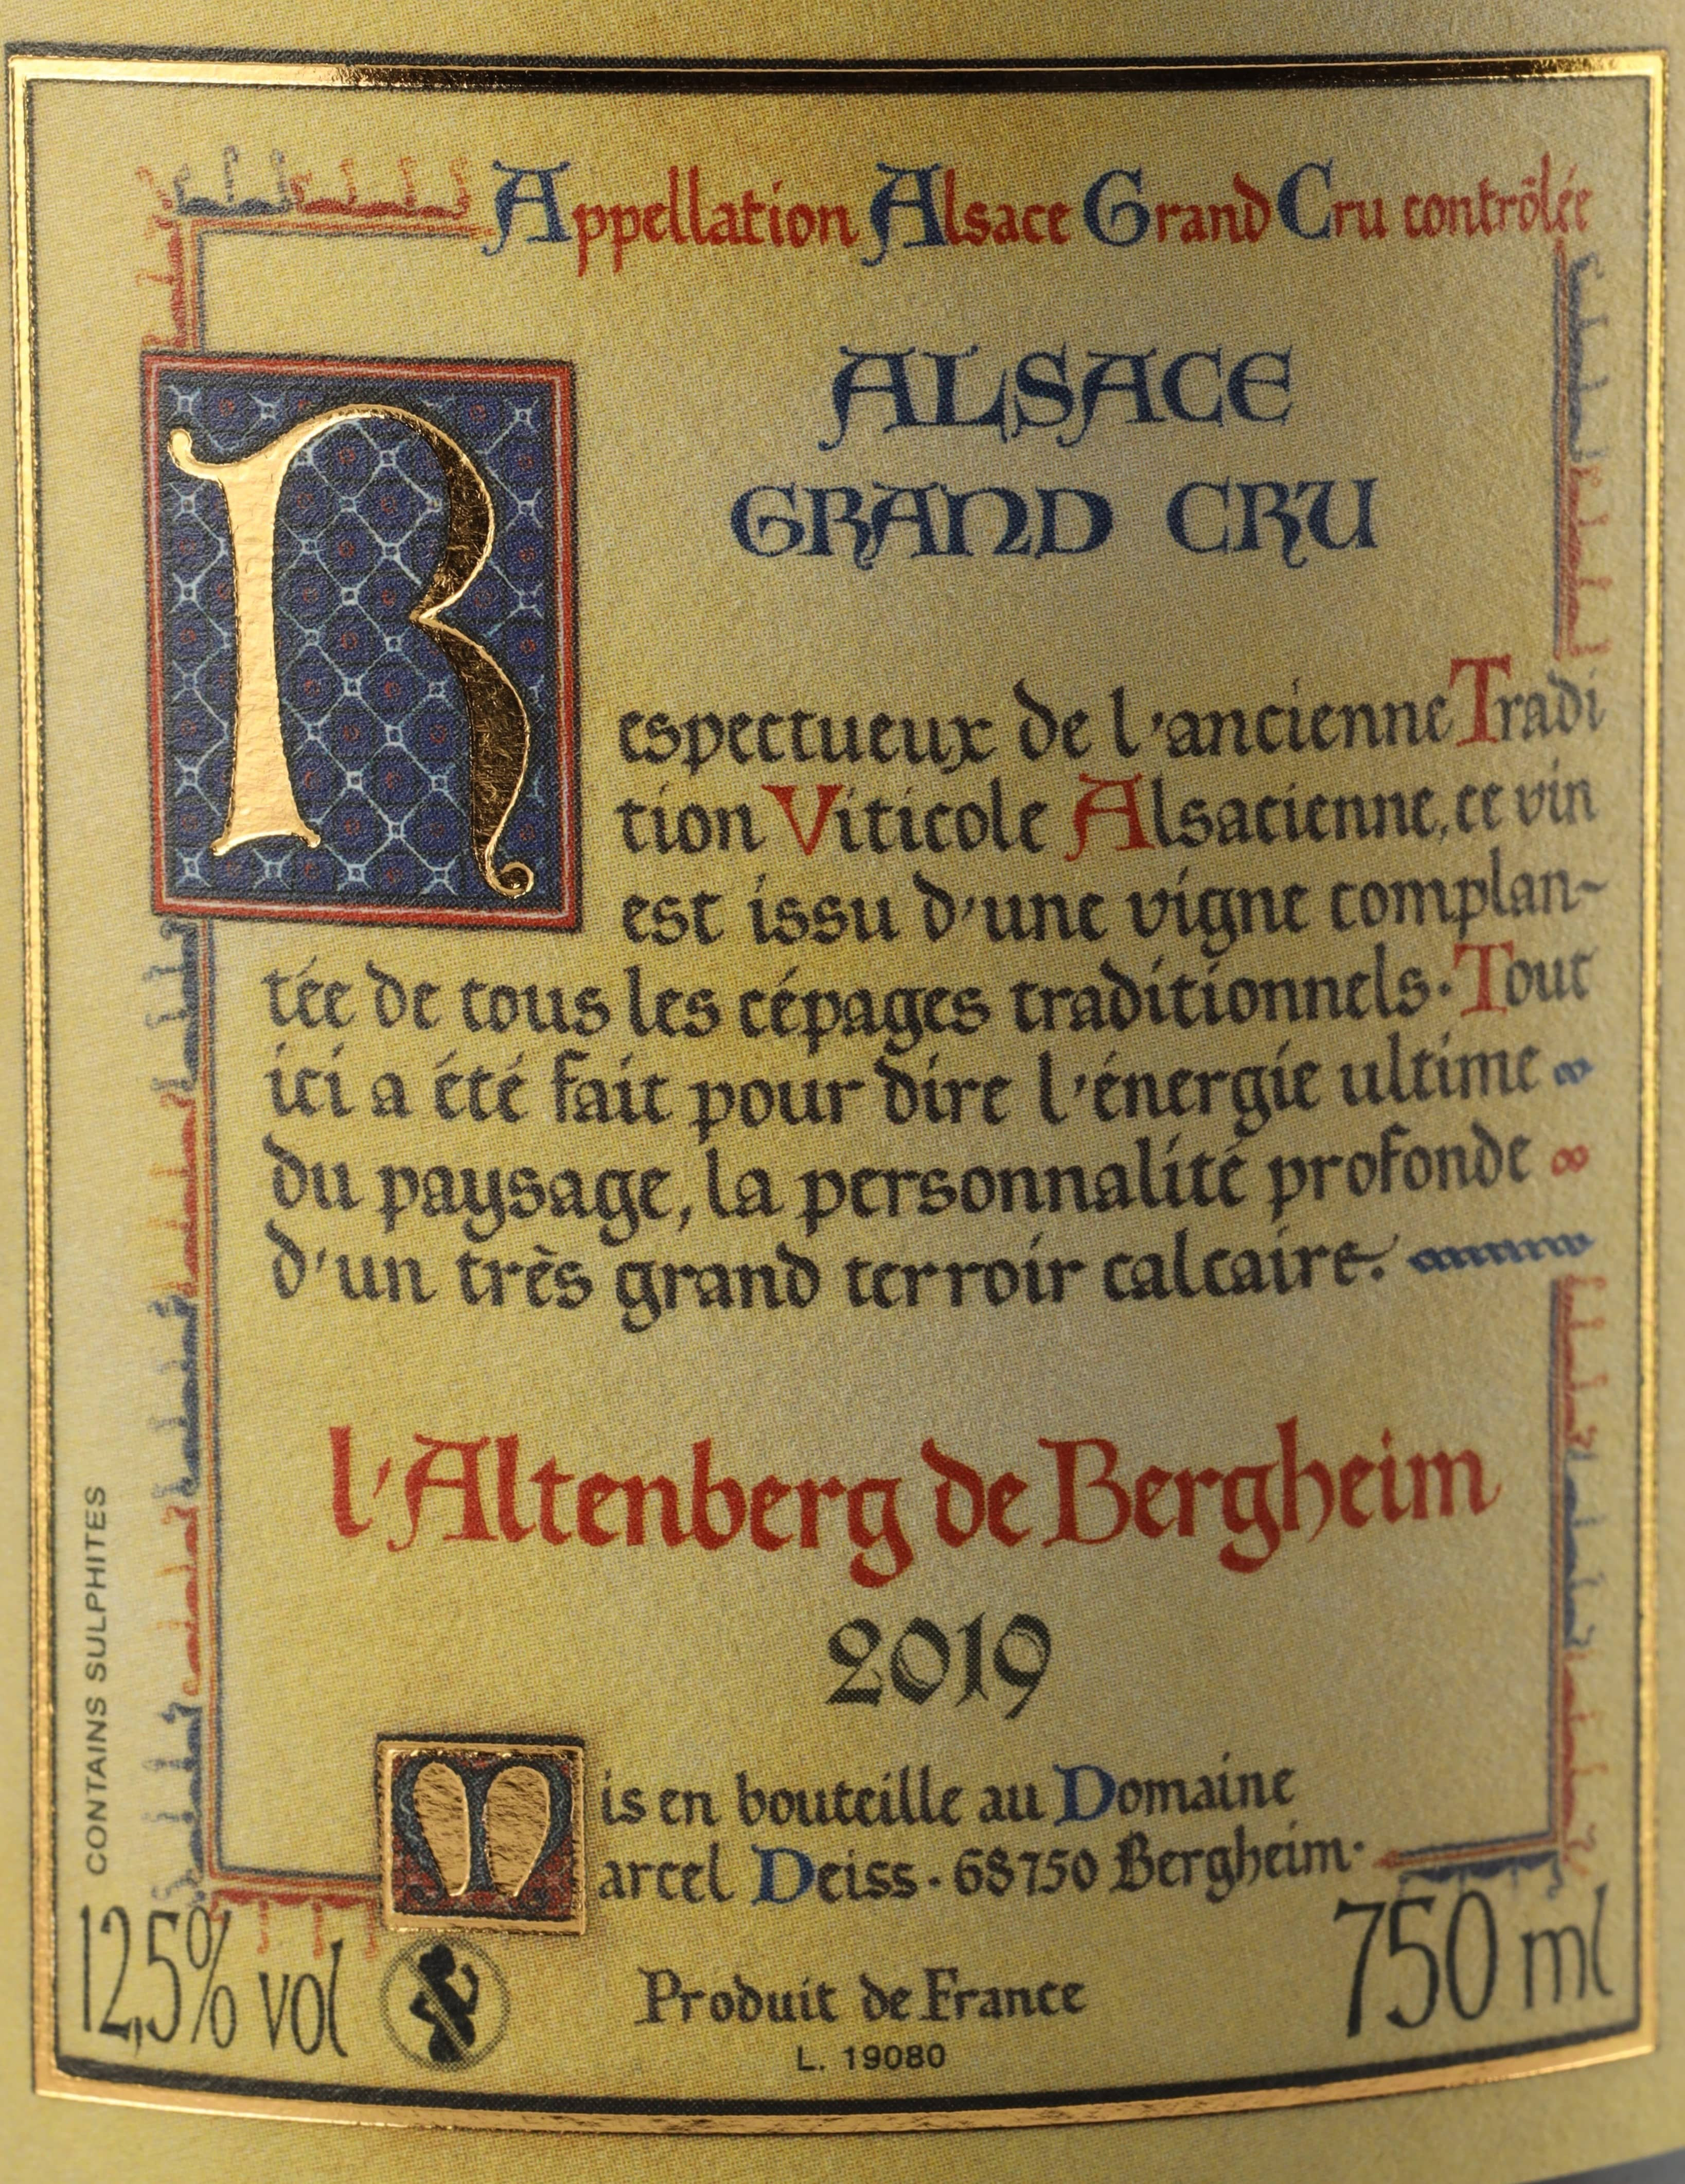 Appellation Alsace Grand Cru contrôlée
ALSACE
GRAND CRU
Respectueux de l'ancienne Tradi
tion Viticole Alsacienne, ce vin
est issu d'une vigne complan-
tée de tous les cépages traditionnels. Tout
ici a été fait pour dire l'énergie ultime
du paysage, la personnalité profonde
d'un très grand terroir calcaire.
l'Altenberg de Bergheim
2019
Mis en bouteille au Domaine
Marcel Deiss. 68750 Bergheim.
CONTAINS SULPHITES
12,5% vol
Produit de France
750 ml
L. 19080